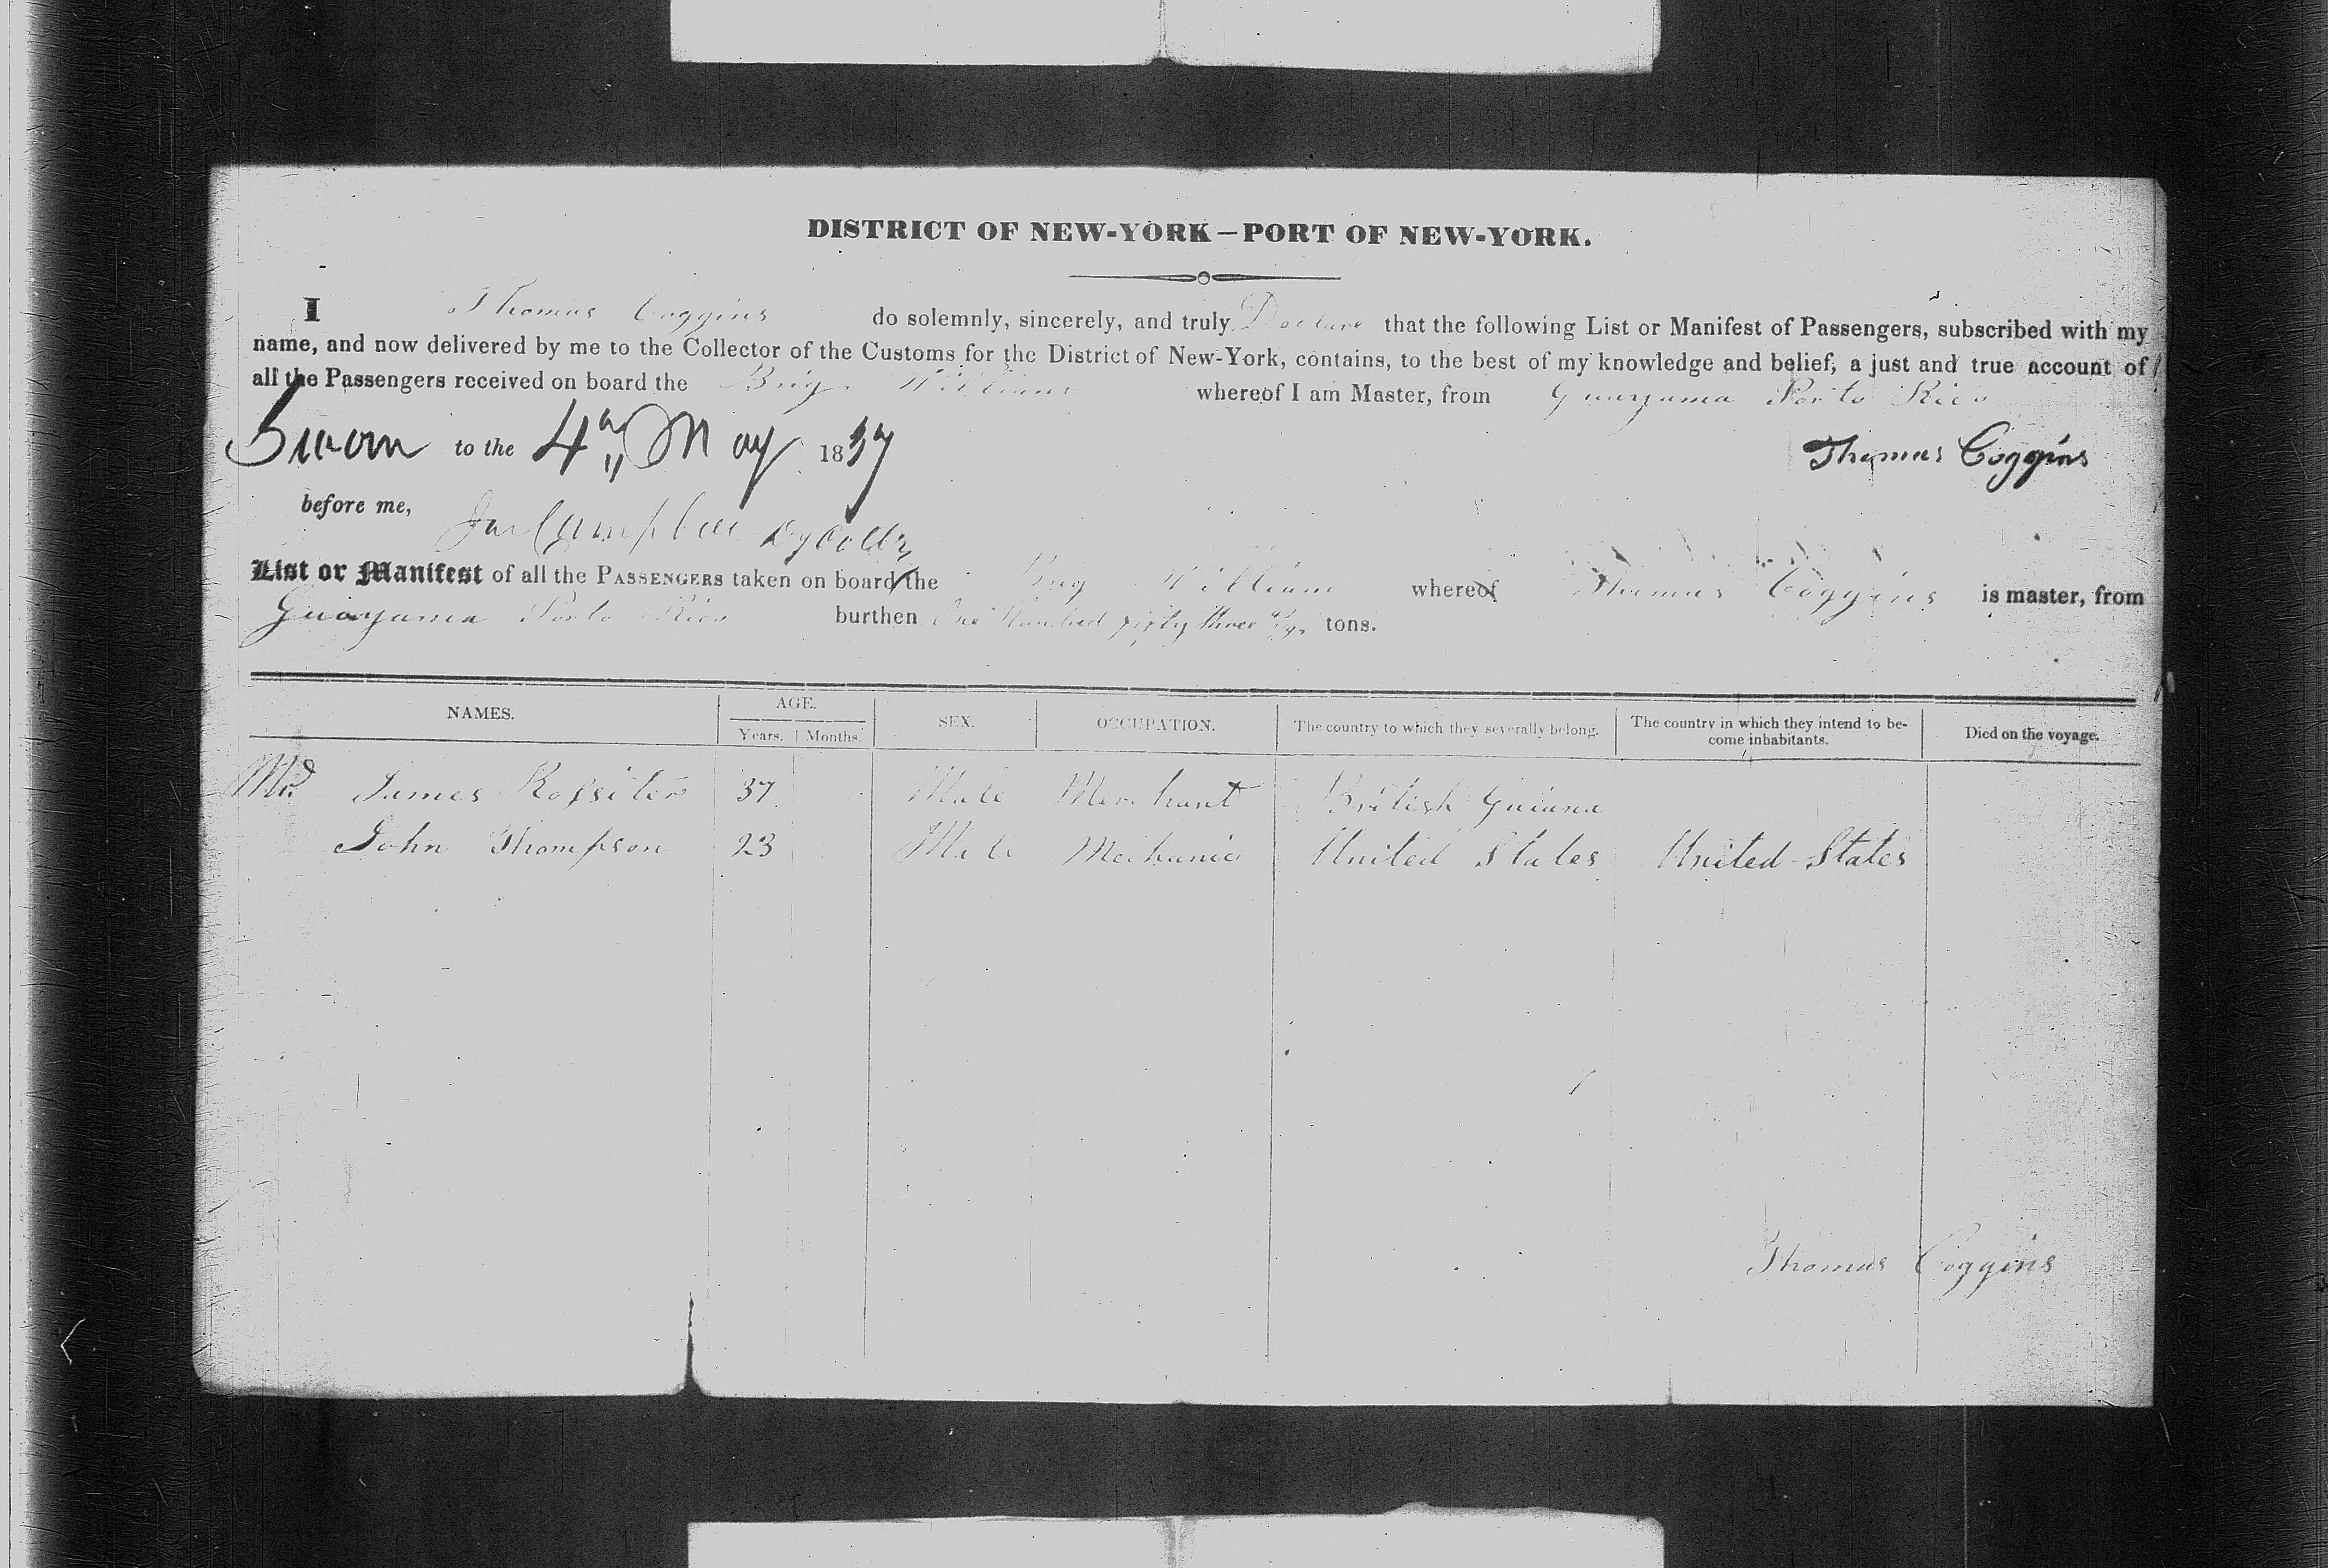 DISTRICT OF NEW-YORK—PORT OF NEW-YORK.
I Thomas Coggins do solemnly, sincerely, and truly Declare that the following List or Manifest of Passengers, subscribed with my
name, and now delivered by me to the Collector of the Customs for the District of New-York, contains, to the best of my knowledge and belief, a just and true account of
all the Passengers received on board the Brig William whereof I am Master, from Guayama Porto Rico
Sworn to the 4th May 1837 Thomas Coggins
before me, Campbell Dy Collr
List or Manifest of all the PASSENGERS taken on board the Brig William whereof Thomas Coggins is master, from
Guayama Porto Rico burthen One Hundred fifty three tons.
NAMES. AGE. SEX. OCCUPATION. The country to which they severally belong. The country in which they intend to be-
come inhabitants. Died on the voyage.
Years. Months.
Mr. James Rossiter 37 Male Merchant British Guiana
John Thompson 23 Male Mechanic United States United States
Thomas Coggins